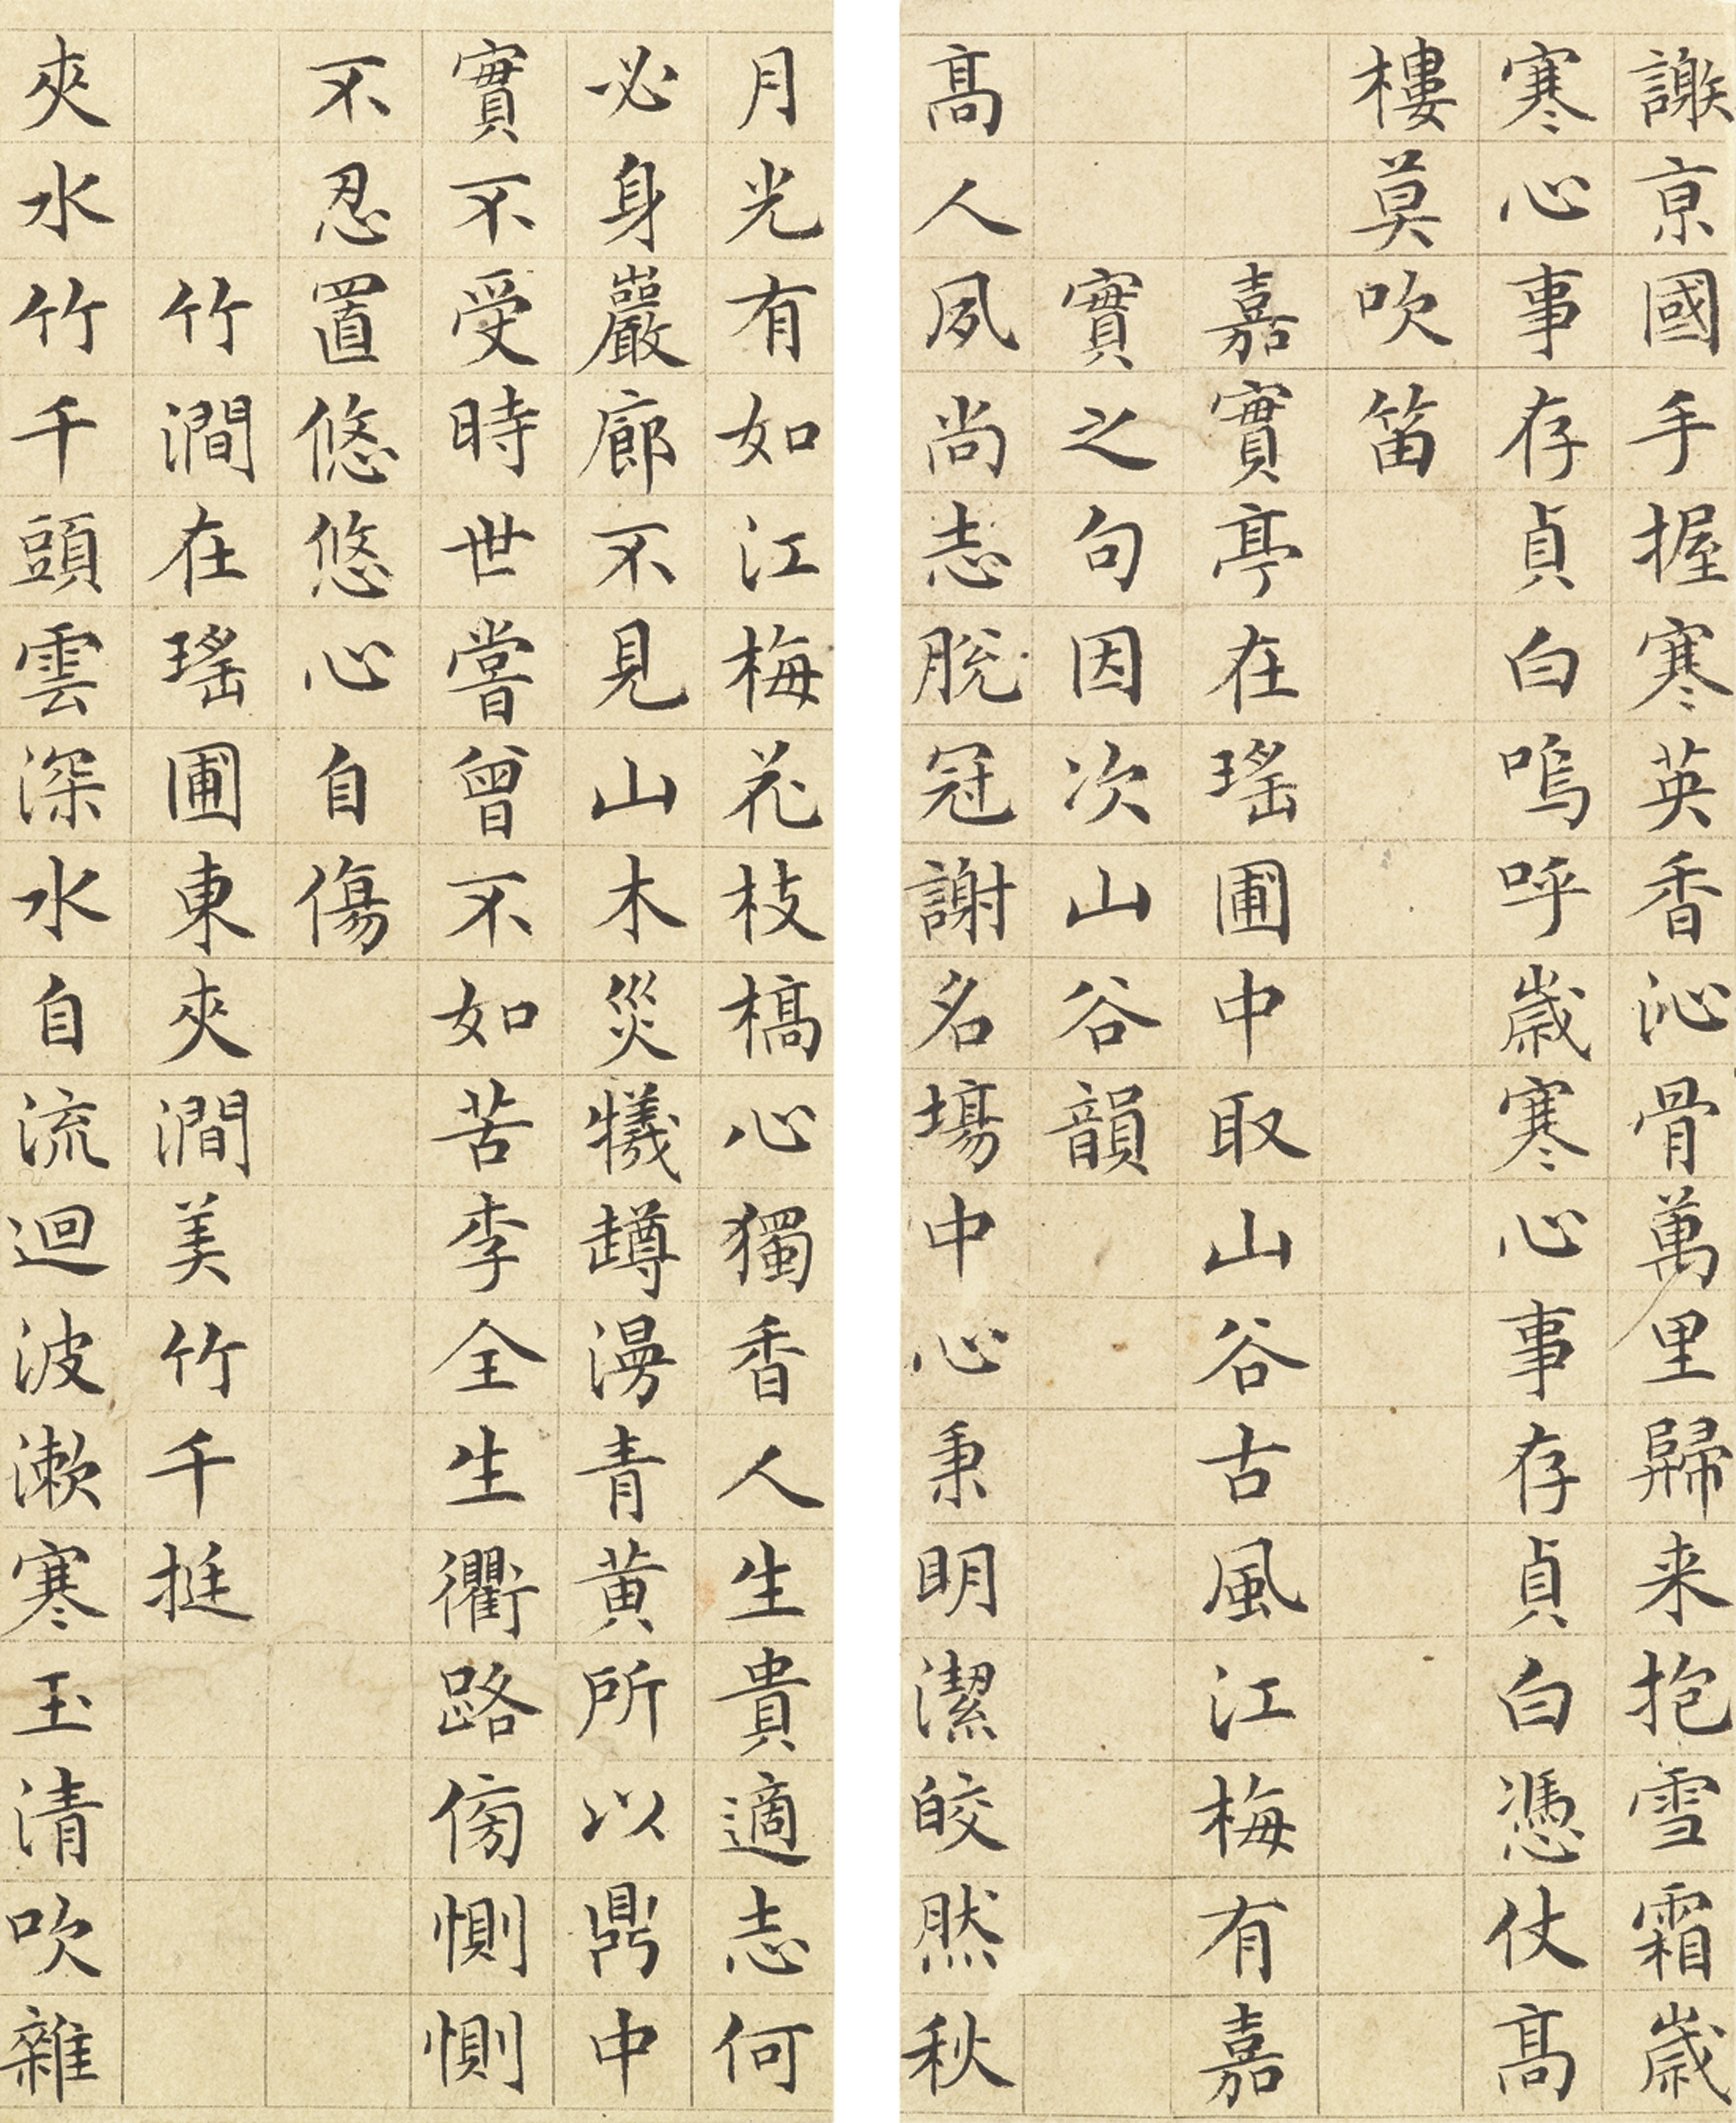 謝京國手握寒英香沁骨萬里歸来抱雪霜歲
寒心事存貞白嗚呼歲寒心事存貞白憑仗高
樓莫吹笛
嘉實亭在瑤圃中取山谷古風江梅有嘉
實之句因次山谷韻
高人夙尚志脫冠謝名場中心秉明潔皎然秋
月光有如江梅花枝槁心獨香人生貴適志何
必身巖廊不見山木災犧罇漫青黃所以鼎中
實不受時世嘗曾不如苦李全生衢路傍惻惻
不忍置悠悠心自傷
竹澗在瑤圃東夾澗美竹千挺
夾水竹千頭雲深水自流迴波漱寒玉清吹雜